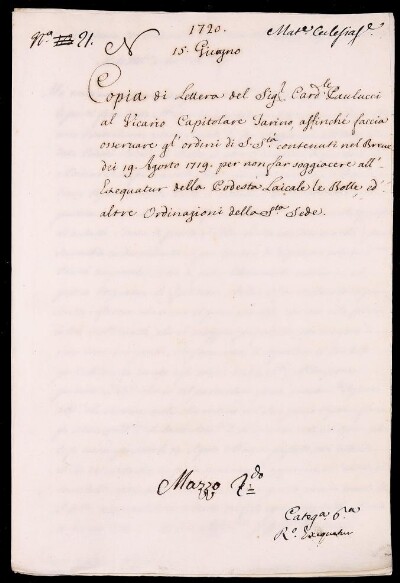 1720.
N.º 21. N 15. Giugno Mat.e Eclesias.e
Copia di Lettera del Sig.r Card.le Paulucci
al Vicario Capitolare Tarino, affinché faccia
osservare gl'ordini di S. S.tà contenuti nel Breve
dei 19. Agosto 1719. per non far soggiacere all'
Exequatur della Podestà Laicale le Bolle, ed
altre Ordinazioni della S.ta Sede.
Mazzo 2.do
Categ.a 6.a
R.o Exequatur